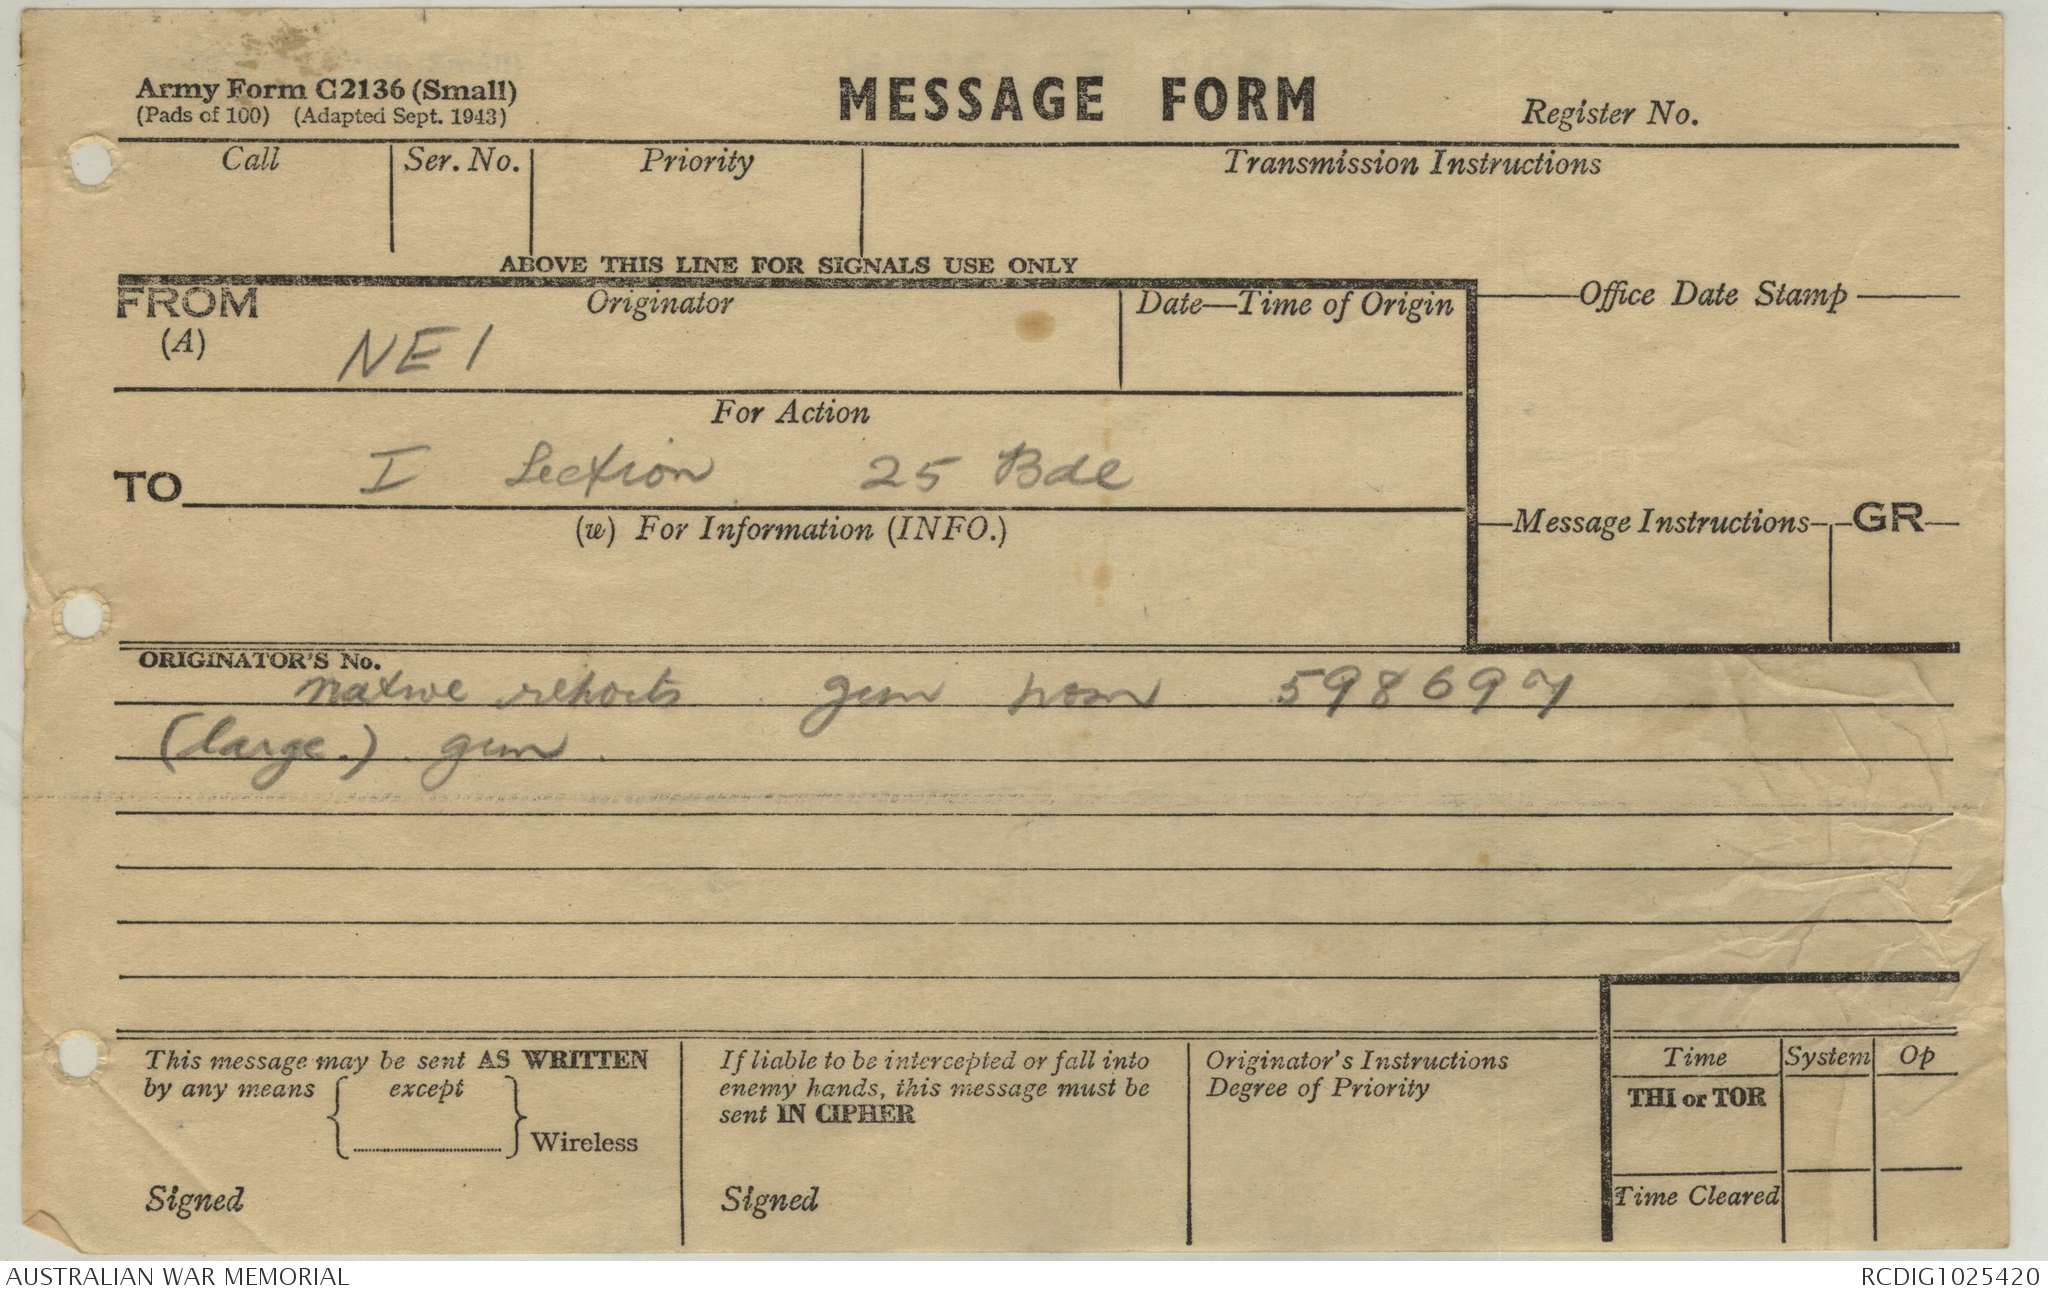 Army Form C2136 (Small)
(Pads of 100) (Adapted Sept. 1943)
MESSAGE FORM
Register No.
Call
Ser. No.
Priority
Transmission Instructions
ABOVE THIS LINE FOR SIGNALS USE ONLY
FROM
(A)
Originator
NEI
Date—Time of Origin
Office Date Stamp
For Action
TO
I Section 25 Bde
(w) For Information (INFO.)
Message Instructions
GR
ORIGINATOR'S No.
native reports gun 598697
(large.) gun
This message may be sent AS WRITTEN
by any means { except } Wireless
Signed
If liable to be intercepted or fall into
enemy hands, this message must be
sent IN CIPHER
Signed
Originator's Instructions
Degree of Priority
Time
System
Op
THI or TOR
Time Cleared
AUSTRALIAN WAR MEMORIAL
RCDIG1025420